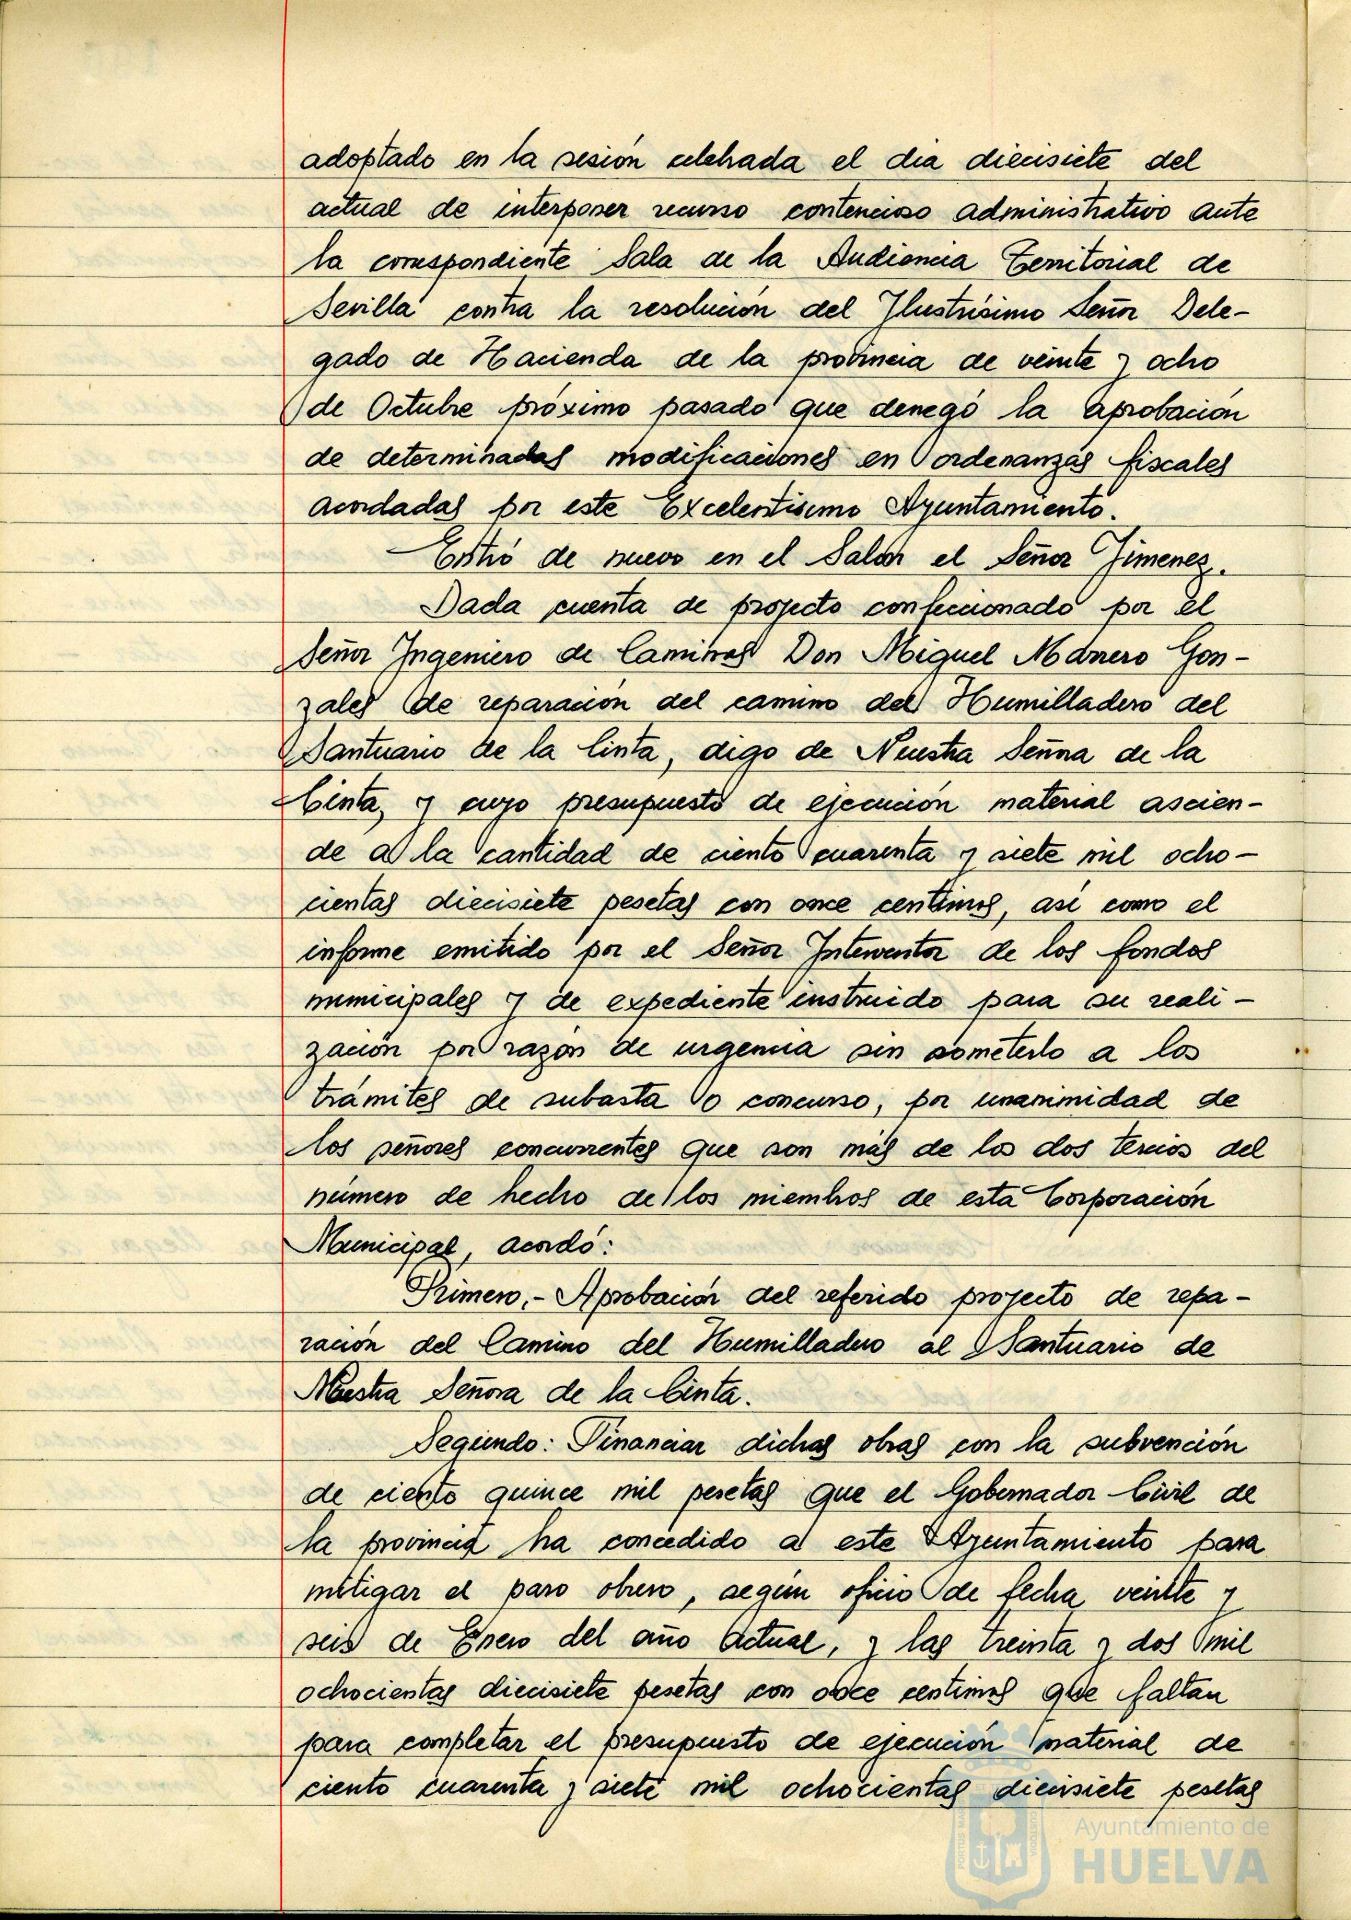 adoptado en la sesión celebrada el dia diecisiete del
actual de interponer recurso contencioso administrativo ante
la correspondiente Sala de la Audiencia Territorial de
Sevilla contra la resolución del Ilustrísimo Señor Dele-
gado de Hacienda de la provincia de veinte y ocho
de Octubre próximo pasado que denegó la aprobación
de determinadas modificaciones en ordenanzas fiscales
acordadas por este Excelentisimo Ayuntamiento.
Entró de nuevo en el Salon el Señor Jimenez.
Dada cuenta de proyecto confeccionado por el
Señor Ingeniero de Caminos Don Miguel Marrero Gon-
zales de reparación del camino del Humilladero del
Santuario de la Cinta, digo de Nuestra Señora de la
Cinta, y cuyo presupuesto de ejecución material ascien-
de a la cantidad de ciento cuarenta y siete mil ocho-
cientas diecisiete pesetas con once centimos, así como el
informe emitido por el Señor Interventor de los fondos
municipales y de expediente instruido para su reali-
zación por razón de urgencia sin someterlo a los
trámites de subasta o concurso, por unanimidad de
los señores concurrentes que son más de los dos tercios del
número de hecho de los miembros de esta Corporación
Municipal, acordó:
Primero.- Aprobación del referido proyecto de repa-
ración del Camino del Humilladero al Santuario de
Nuestra Señora de la Cinta.
Segundo: Financiar dichas obras con la subvención
de ciento quince mil pesetas que el Gobernador Civil de
la provincia ha concedido a este Ayuntamiento para
mitigar el paro obrero, según oficio de fecha veinte y
seis de Enero del año actual, y las treinta y dos mil
ochocientas diecisiete pesetas con once centimos que faltan
para completar el presupuesto de ejecución material de
ciento cuarenta y siete mil ochocientas diecisiete pesetas
Ayuntamiento de
HUELVA